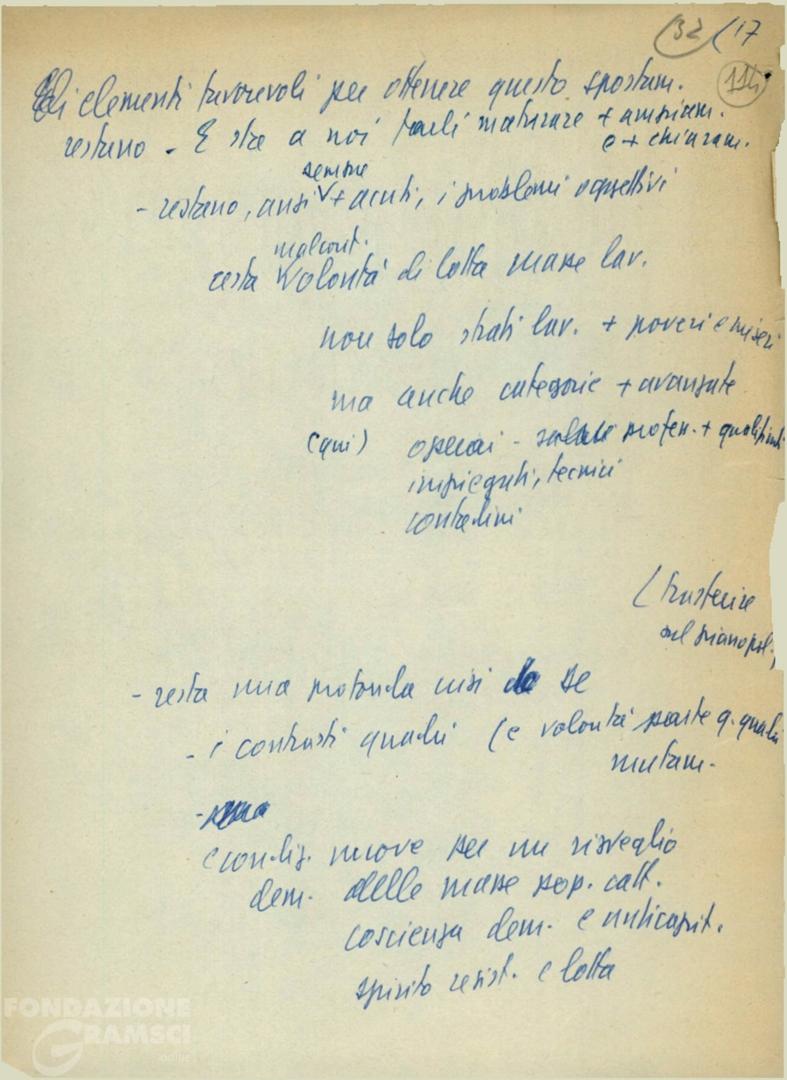 32 (17
114
Gli elementi favorevoli per ottenere questo spostam.
restano - E sta a noi farli maturare + ampiam.
e + chiaram.
sempre
- restano, anzi + acuti, i problemi oggettivi
malcont.
certa volontà di lotta masse lav.
non solo strati lav. + poveri e miseri
ma anche categorie + avanzate
(qui) operai - profess. + qualificati
impiegati, tecnici
contadini
(trasferire
sul piano pol.)
- resta una profonda crisi
- i contrasti quadri (e volontà parte q. quadri
mutam.
condiz. nuove per un risveglio
dem. delle masse pop. catt.
coscienza dem. e anticapit.
spirito resist. e lotta
FONDAZIONE
GRAMSCI